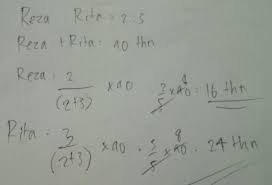 Reza Rita = 2:3
Reza + Rita = 40 thn
Reza = 2/(2+3) × 40 = 2/5 × 40 8 = 16 thn
Rita = 3/(2+3) × 40 = 3/5 × 40 8 = 24 thn